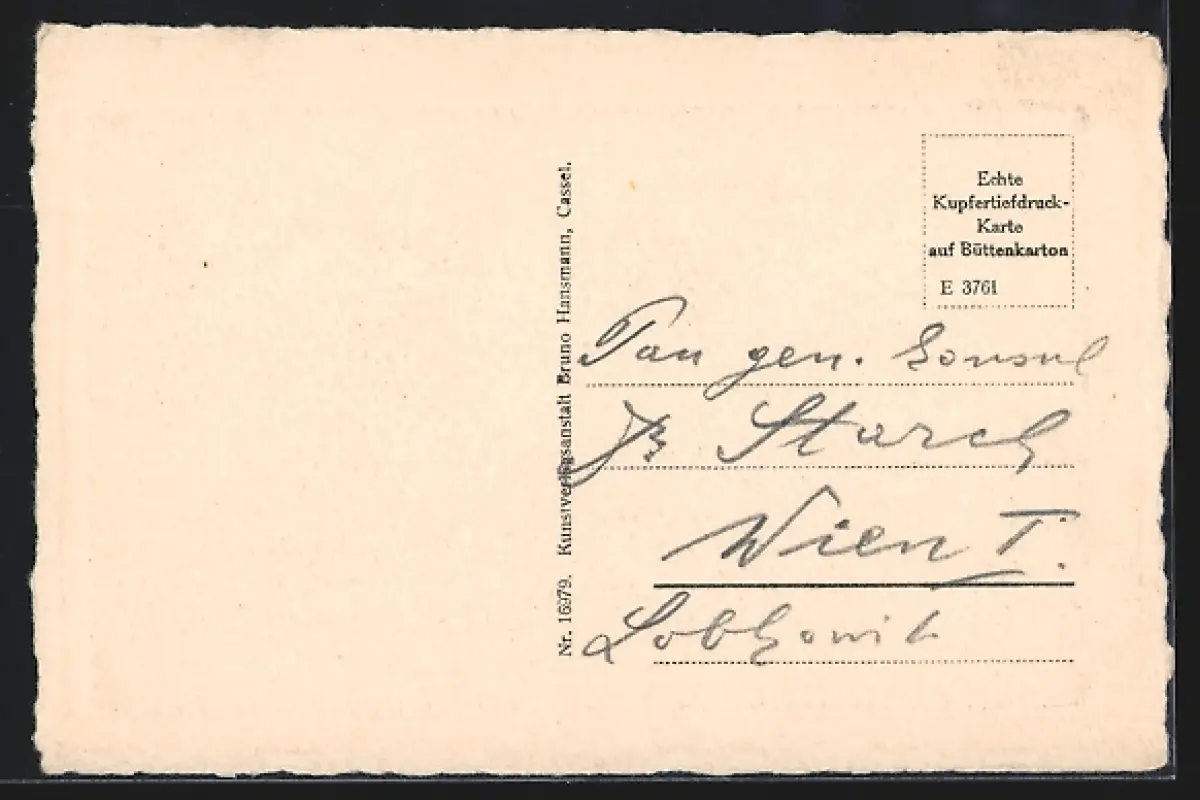 Nr. 16979. Kunstverlagsanstalt Bruno Hansmann, Cassel.
Echte
Kupfertiefdruck-
Karte
auf Büttenkarton
E 3761
gen. Consul
Wien I.